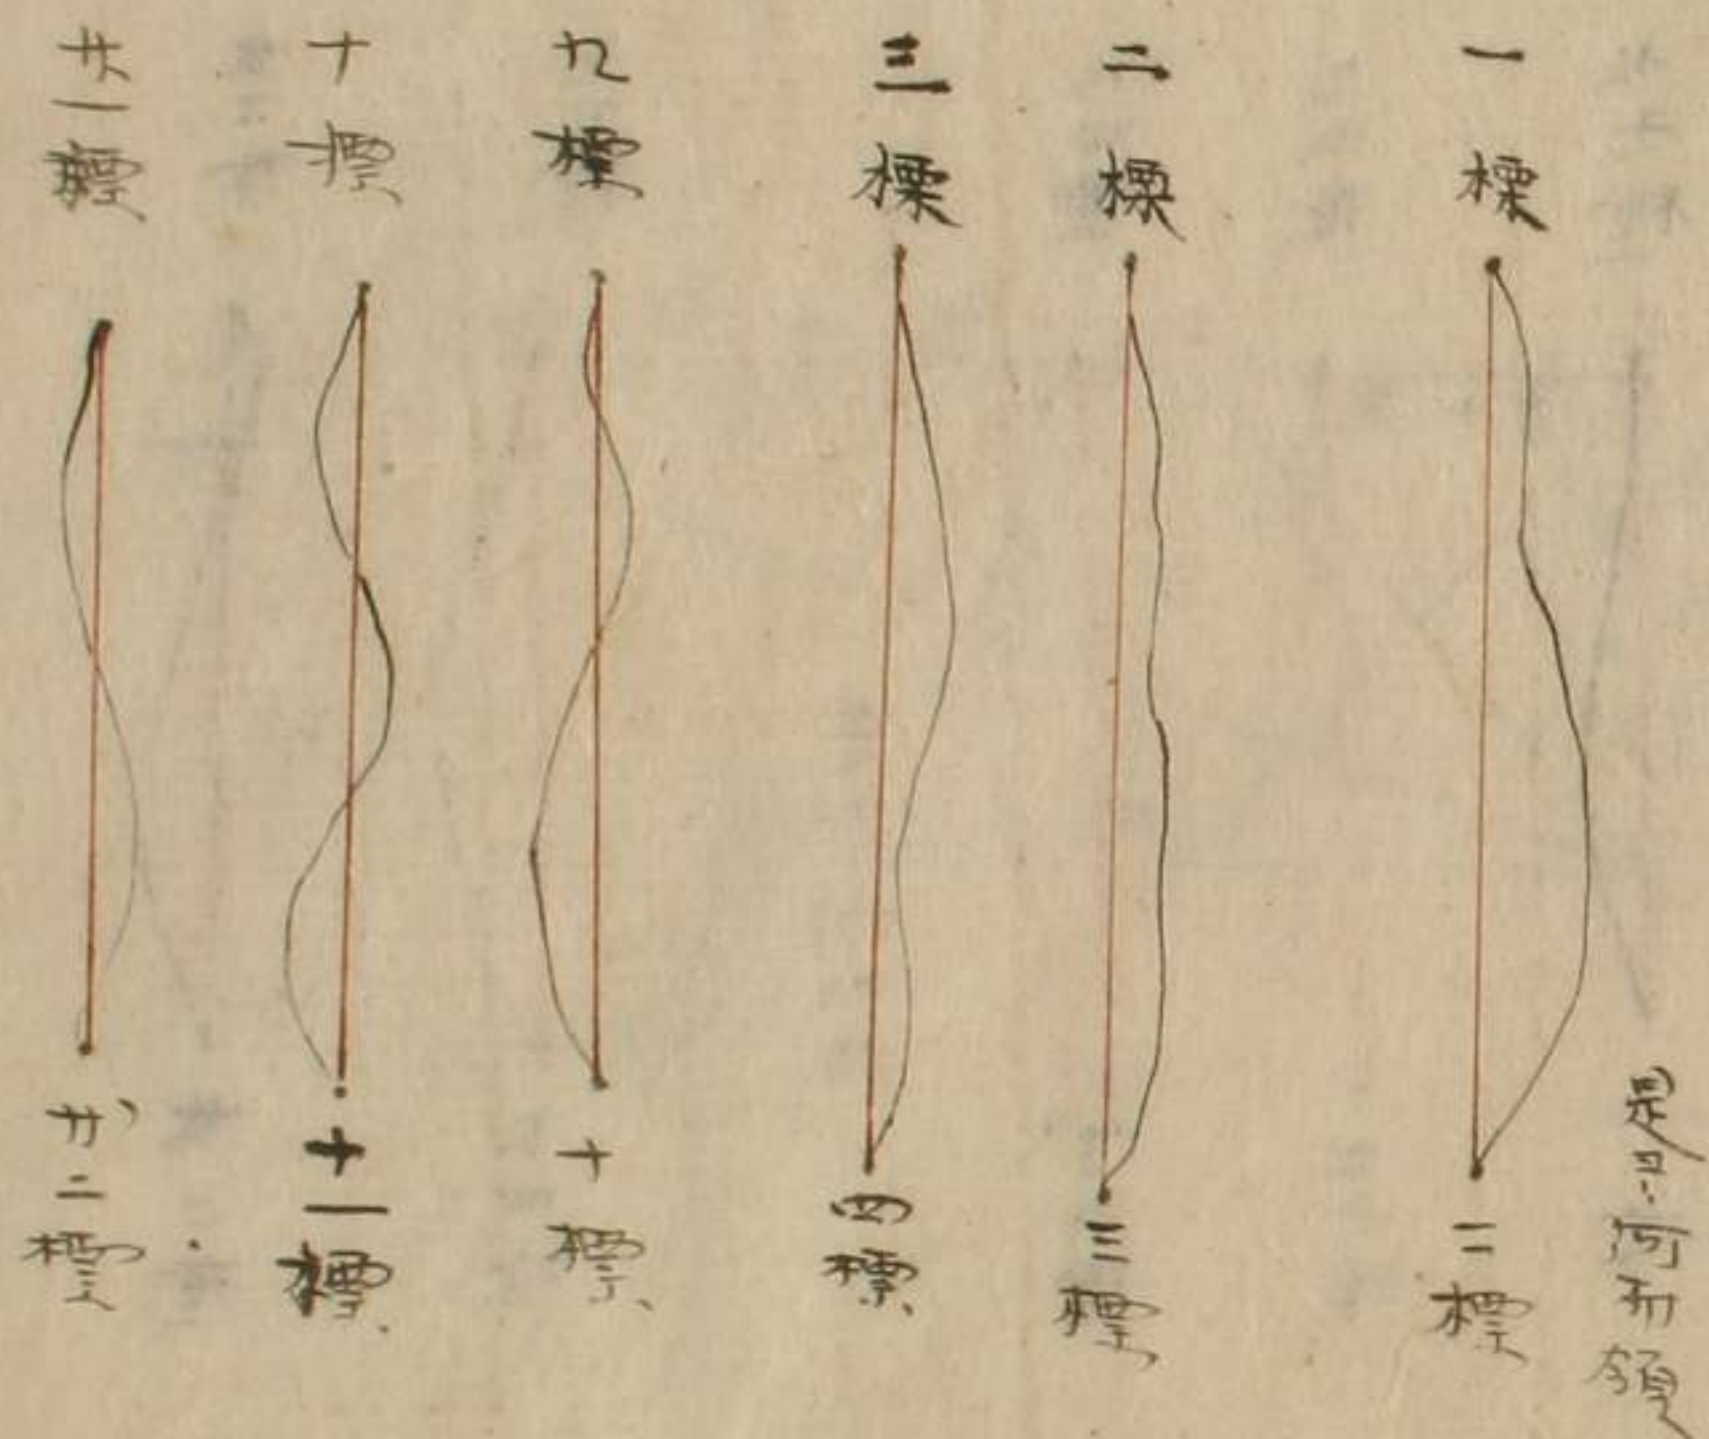 一標
二標
二標
三標
三標
四標
九標
十標
十標
十一標
廿一標
廿二標